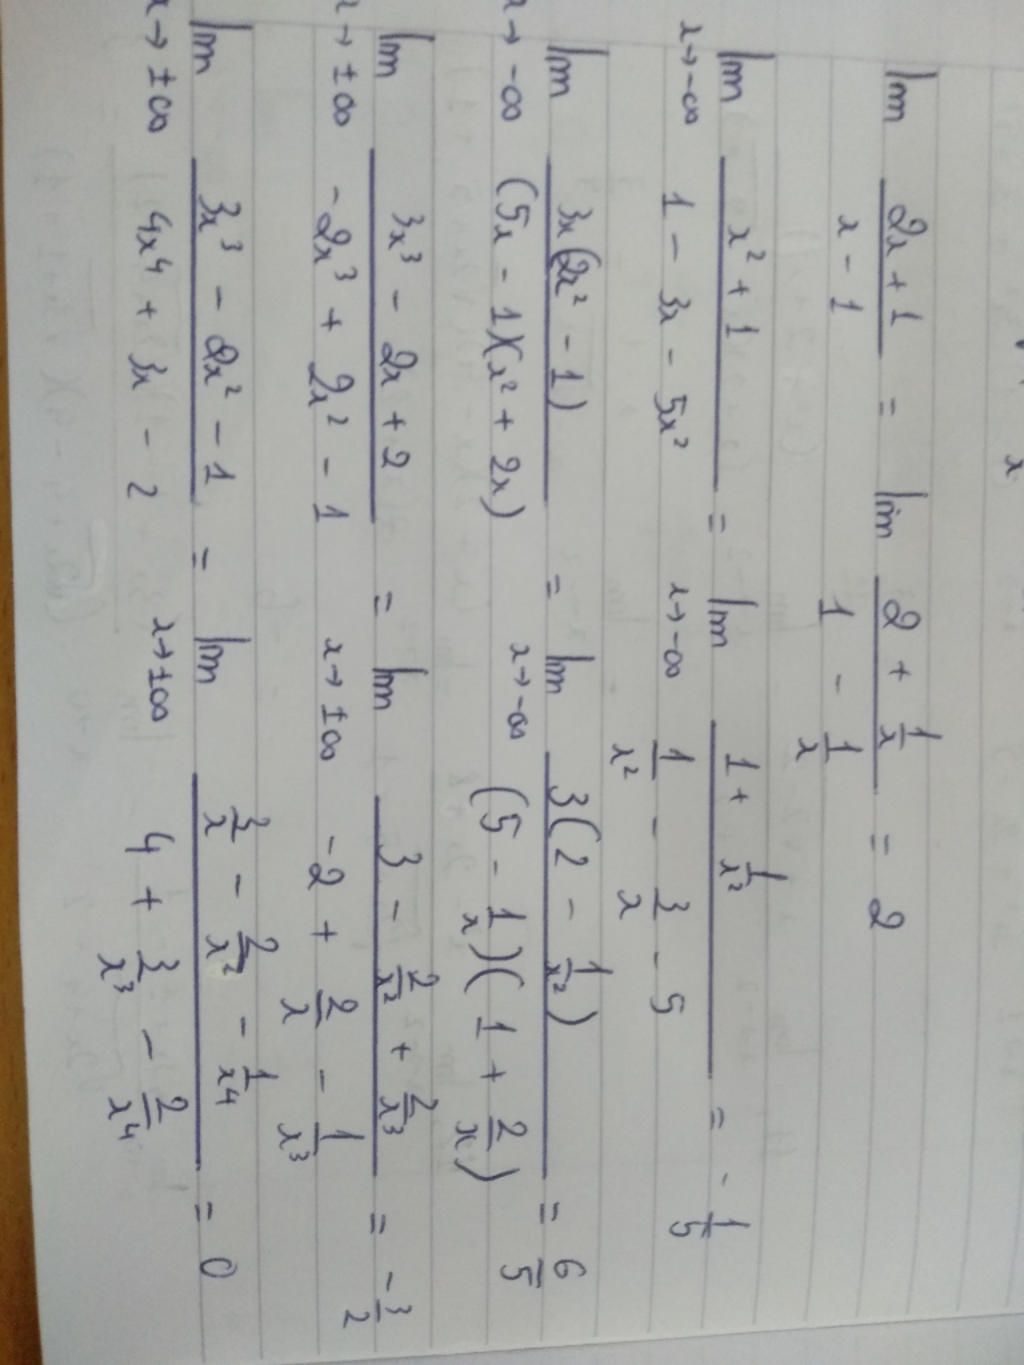 x
lim (2x + 1)/(x - 1) = lim (2 + 1/x)/(1 - 1/x) = 2
lim x→-∞ (x² + 1)/(1 - 3x - 5x²) = lim x→-∞ (1 + 1/x²)/(1/x² - 3/x - 5) = -1/5
lim x→-∞ 3x(2x² - 1)/(5x - 1)(x² + 2x) = lim x→-∞ 3(2 - 1/x²)/(5 - 1/x)(1 + 2/x) = 6/5
lim x→±∞ (3x³ - 2x + 2)/(-2x³ + 2x² - 1) = lim x→±∞ (3 - 2/x² + 2/x³)/(-2 + 2/x - 1/x³) = -3/2
lim x→±∞ (3x³ - 2x² - 1)/(4x⁴ + 3x - 2) = lim x→±∞ (3/x - 2/x² - 1/x⁴)/(4 + 3/x³ - 2/x⁴) = 0